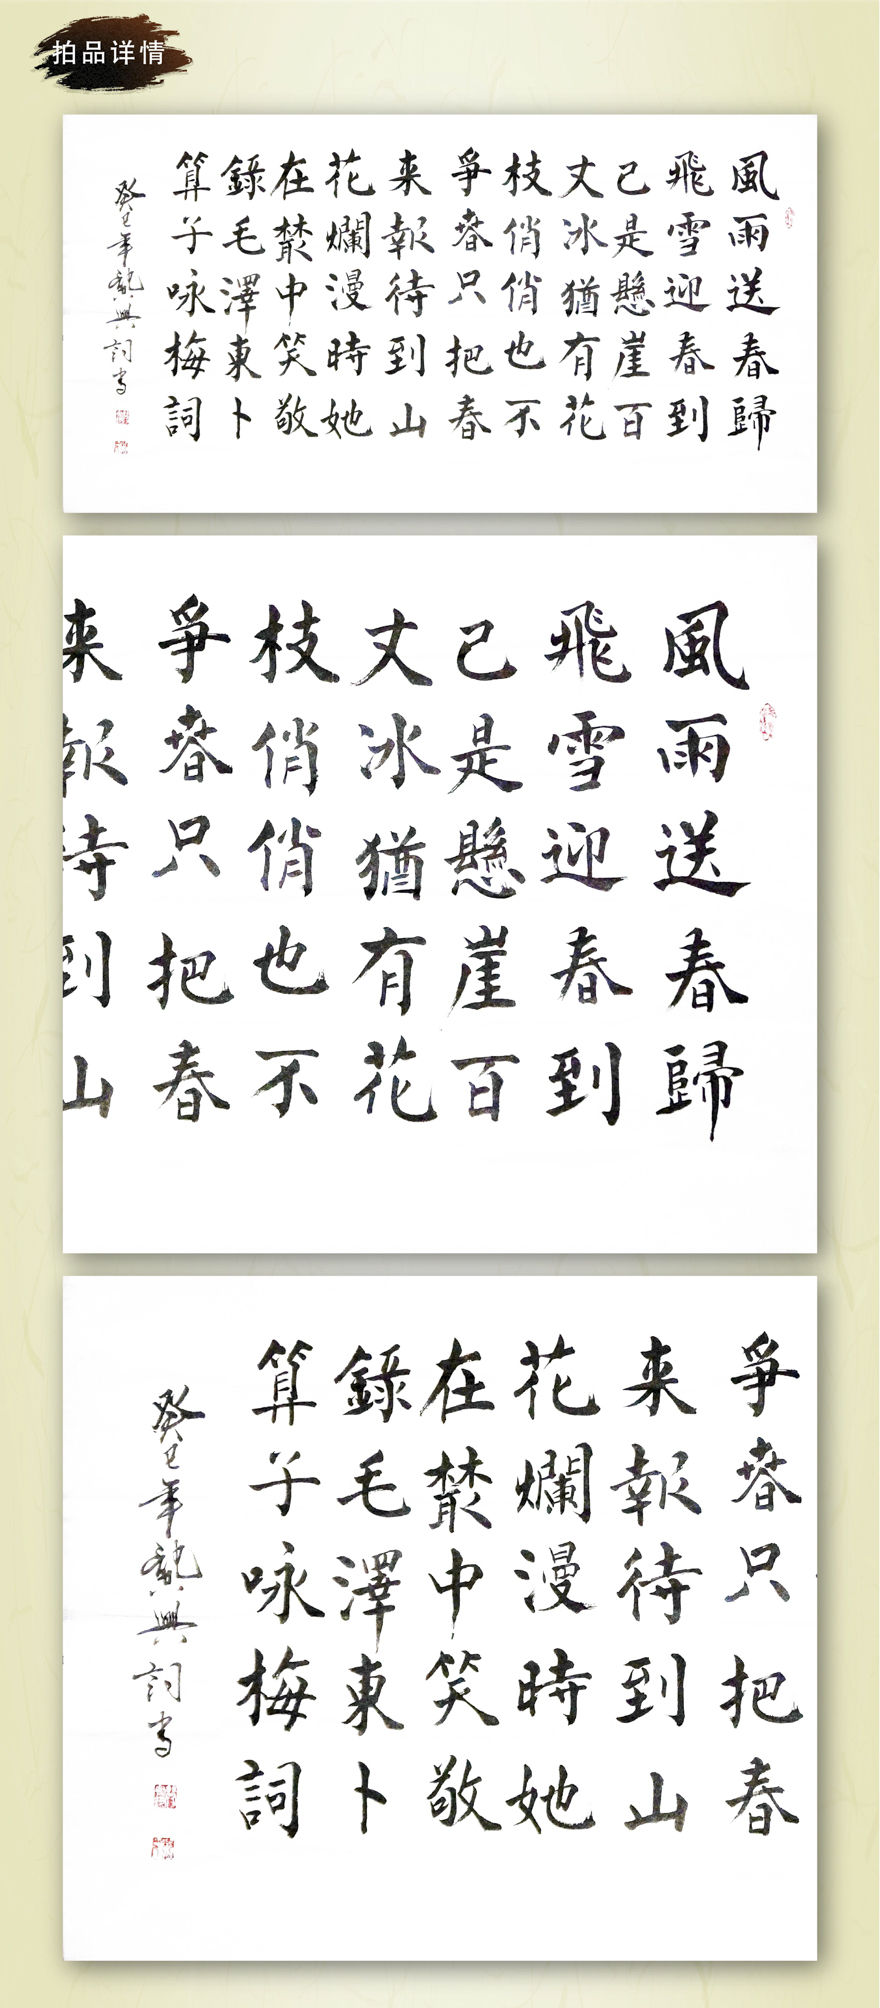 拍品详情
風雨送春歸
飛雪迎春到
已是懸崖百
丈冰猶有花
枝俏俏也不
爭萅只把春
来報待到山
花爛漫時她
在叢中笑敬
錄毛澤東卜
算子咏梅詞
癸巳年興詞書
風雨送春歸
飛雪迎春到
已是懸崖百
丈冰猶有花
枝俏俏也不
爭萅只把春
来報待到山
爭萅只把春
来報待到山
花爛漫時她
在叢中笑敬
錄毛澤東卜
算子咏梅詞
癸巳年興詞書